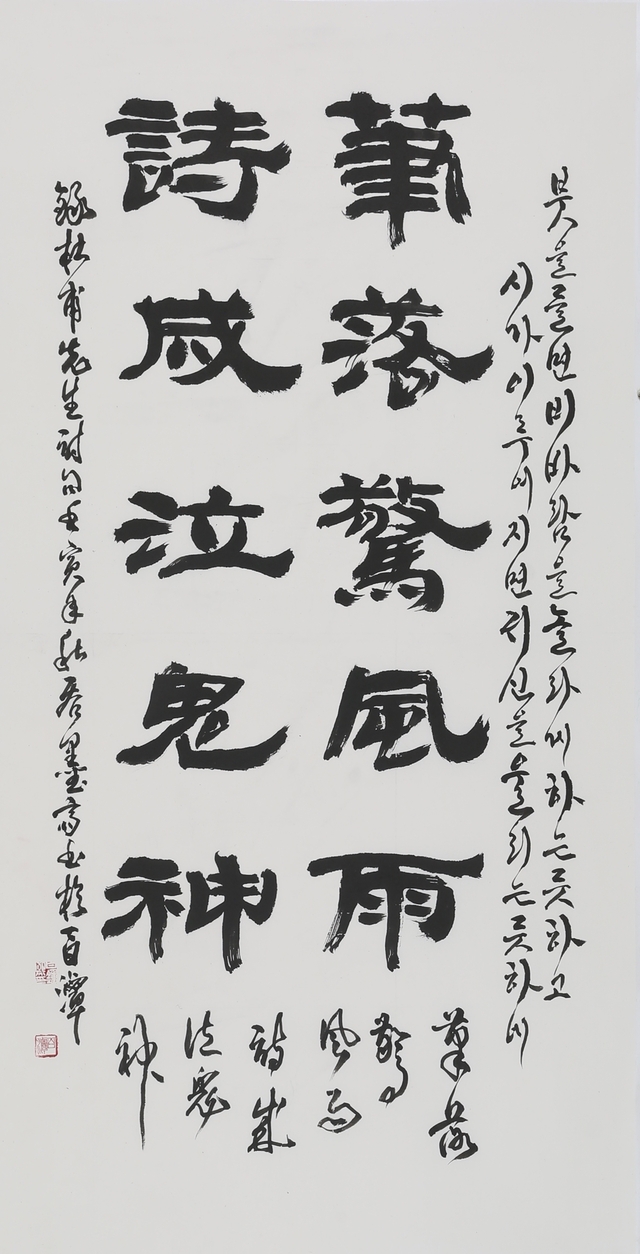 붓을 들면 비바람을 놀라게 하는 듯하고
시가 이루어지면 귀신을 울리는 듯하네
筆落驚風雨
詩成泣鬼神
筆落
驚
風雨
詩成
泣鬼
神
錄杜甫先生詩句壬寅年秋 墨斎 百潭